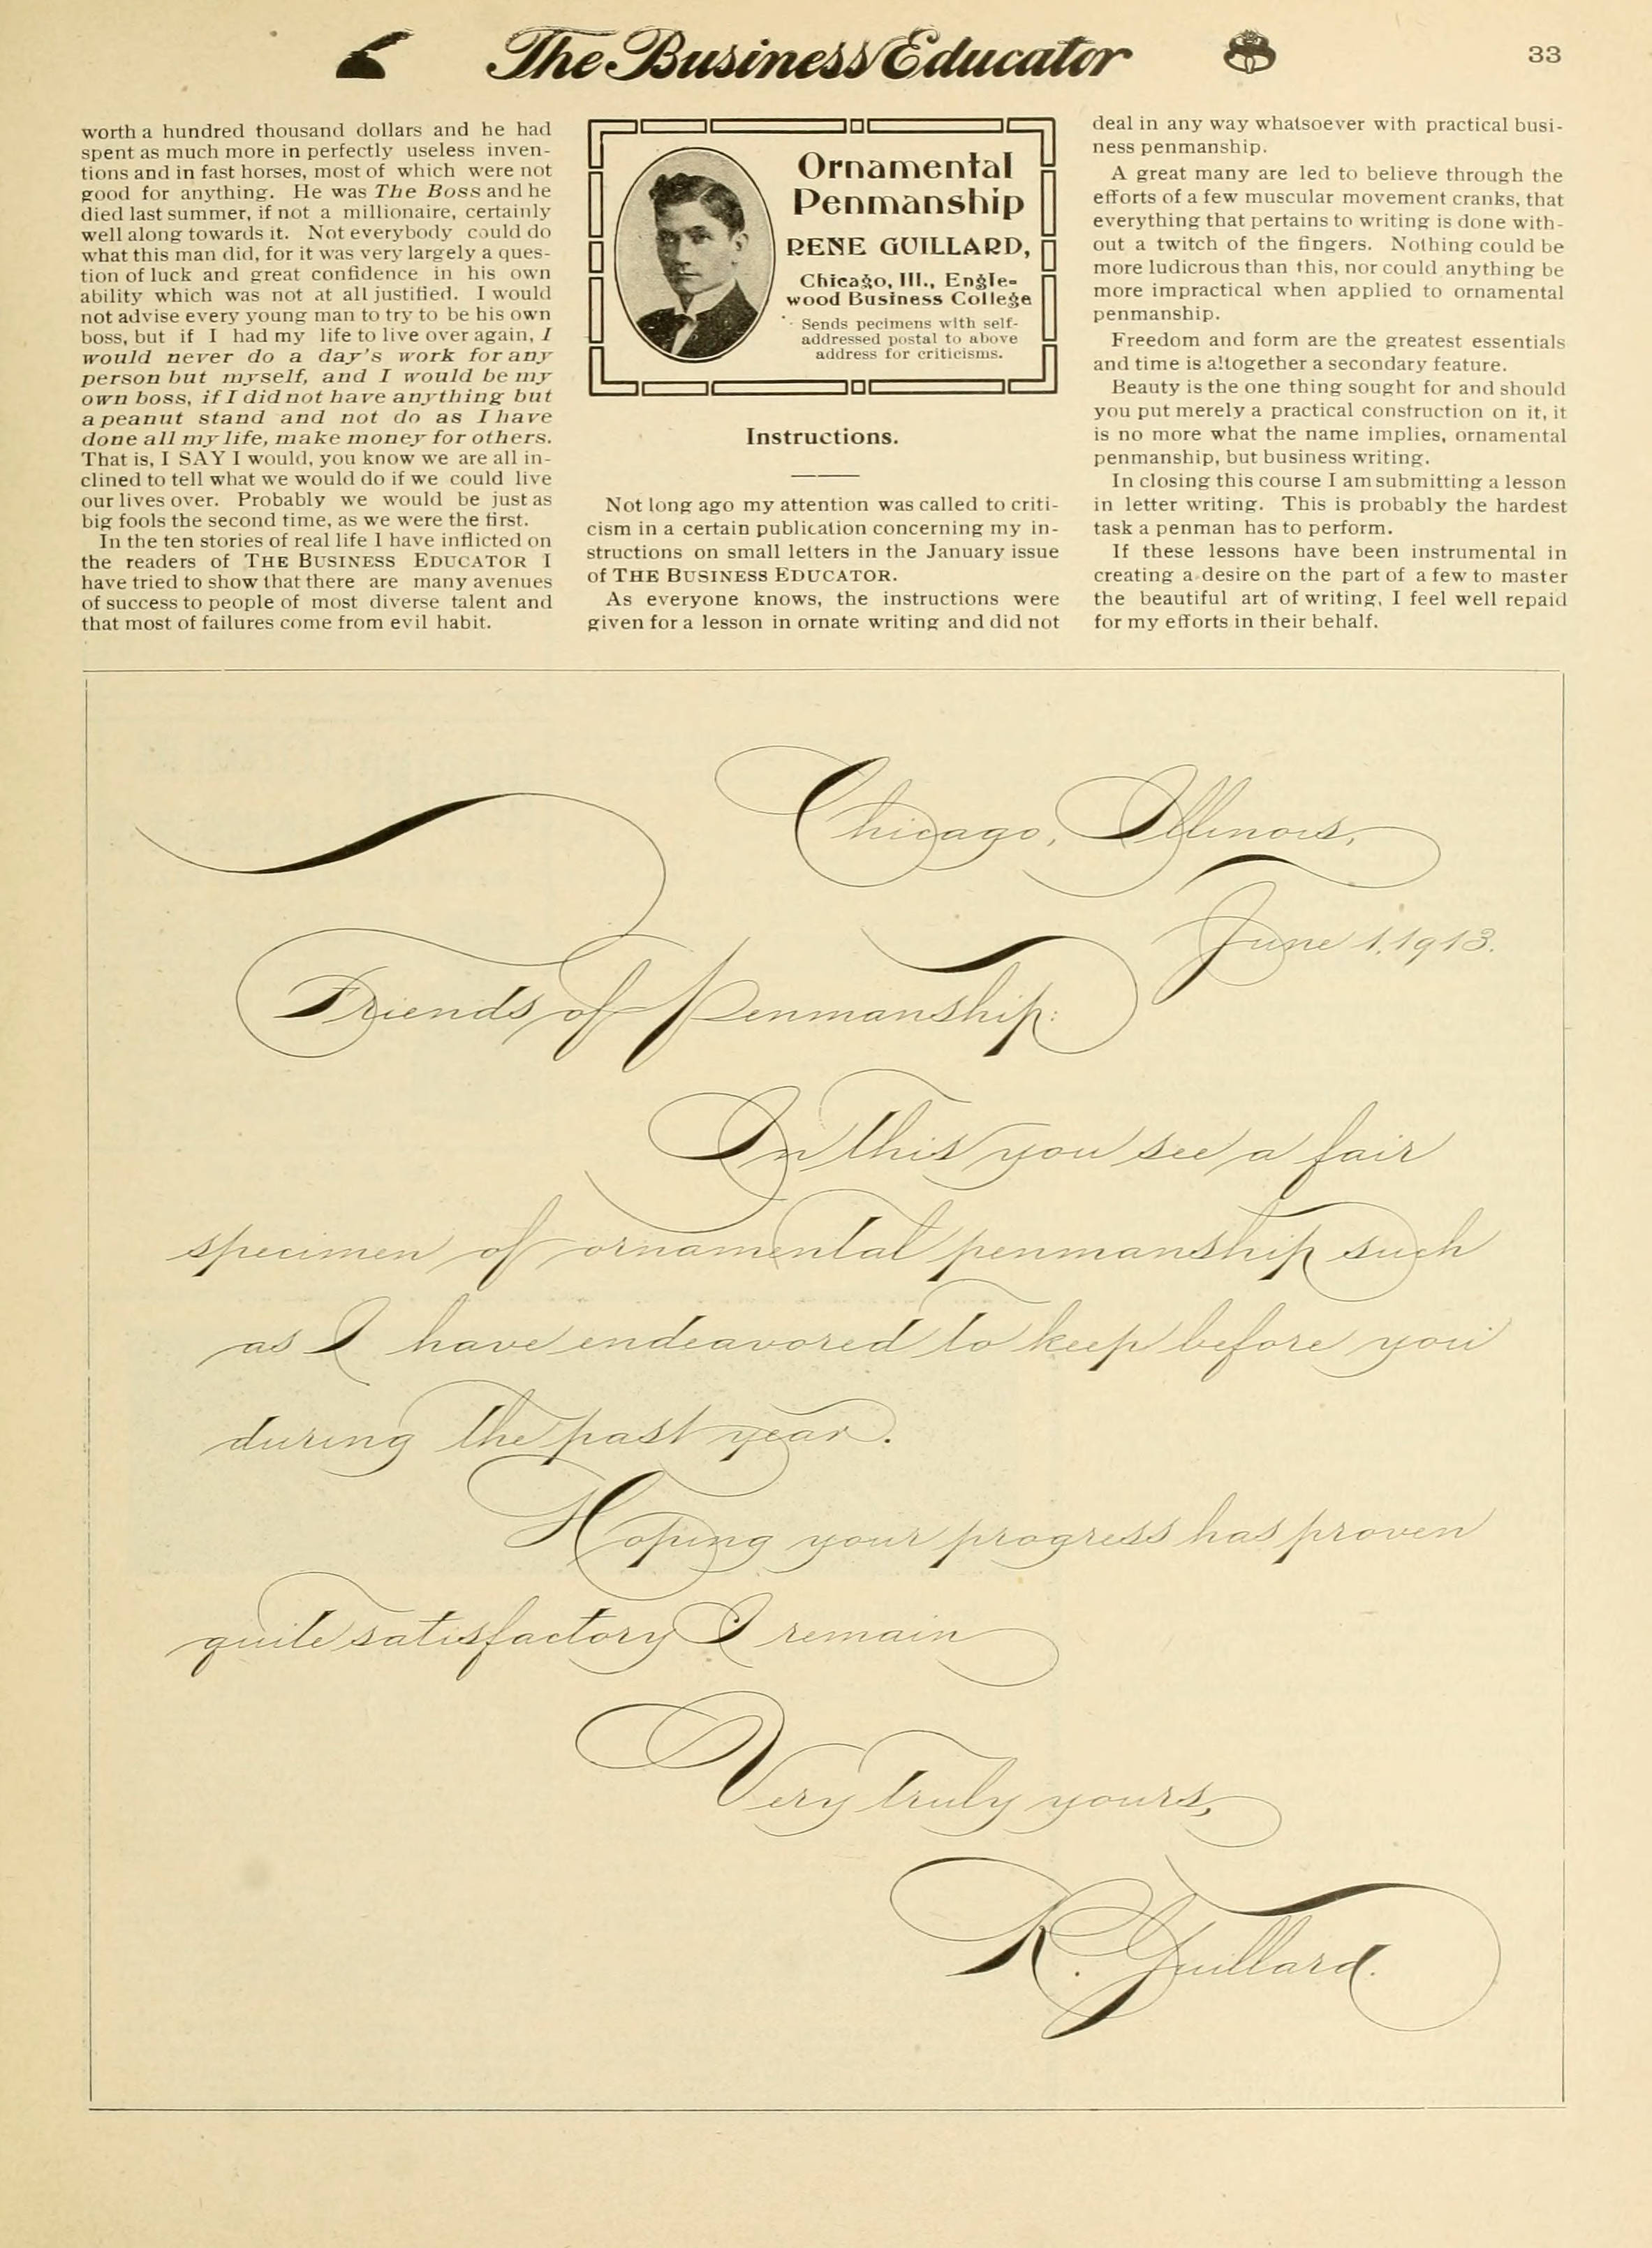 The Business Educator
33
worth a hundred thousand dollars and he had
spent as much more in perfectly useless inven-
tions and in fast horses, most of which were not
good for anything. He was The Boss and he
died last summer, if not a millionaire, certainly
well along towards it. Not everybody could do
what this man did, for it was very largely a ques-
tion of luck and great confidence in his own
ability which was not at all justified. I would
not advise every young man to try to be his own
boss, but if I had my life to live over again, I
would never do a day's work for any
person but myself, and I would be my
own boss, if I did not have anything but
a peanut stand and not do as I have
done all my life, make money for others.
That is, I SAY I would, you know we are all in-
clined to tell what we would do if we could live
our lives over. Probably we would be just as
big fools the second time, as we were the first.
In the ten stories of real life I have inflicted on
the readers of THE BUSINESS EDUCATOR I
have tried to show that there are many avenues
of success to people of most diverse talent and
that most of failures come from evil habit.
Ornamental
Penmanship
RENE GUILLARD,
Chicago, Ill., Engle-
wood Business College
Sends pecimens with self-
addressed postal to above
address for criticisms.
Instructions.
Not long ago my attention was called to criti-
cism in a certain publication concerning my in-
structions on small letters in the January issue
of THE BUSINESS EDUCATOR.
As everyone knows, the instructions were
given for a lesson in ornate writing and did not
deal in any way whatsoever with practical busi-
ness penmanship.
A great many are led to believe through the
efforts of a few muscular movement cranks, that
everything that pertains to writing is done with-
out a twitch of the fingers. Nothing could be
more ludicrous than this, nor could anything be
more impractical when applied to ornamental
penmanship.
Freedom and form are the greatest essentials
and time is altogether a secondary feature.
Beauty is the one thing sought for and should
you put merely a practical construction on it, it
is no more what the name implies, ornamental
penmanship, but business writing.
In closing this course I am submitting a lesson
in letter writing. This is probably the hardest
task a penman has to perform.
If these lessons have been instrumental in
creating a desire on the part of a few to master
the beautiful art of writing, I feel well repaid
for my efforts in their behalf.
Chicago, Illinois,
June 1, 1913.
Friends of Penmanship:
In this you see a fair
specimen of ornamental penmanship such
as I have endeavored to keep before you
during the past year.
Hoping your progress has proven
quite satisfactory I remain
Very truly yours,
R. Guillard.